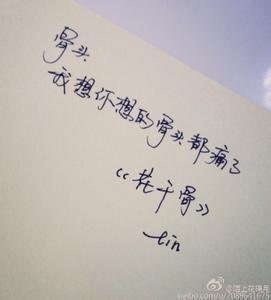 骨头
我想你想的骨头都痛了
《花千骨》
-lin
@陌上花锦月
weibo.com/2089641675